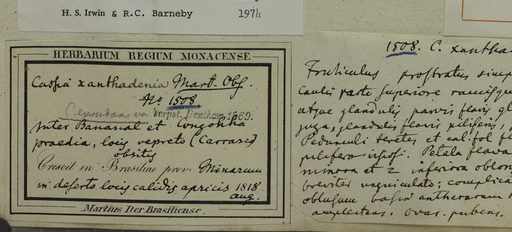 H. S. Irwin & R. C. Barneby 1974
HERBARIUM REGIUM MONACENSE
Cassia xanthadenia Mart. Obs.
No. 1508
Benth. 1869.
Inter Bananal et
praedia, locis vepreto (Carrasco)
obsitis
Crescit in Brasiliae prov. Minarum
in deserto locis calidis apricis 1818
aug.
Martius Iter Brasiliense.
1508. C. xantha
Fruticulus prostratus simp
caulis parte superiore
atque glandulis parvis flavis
juga, glandulis flavis
Pedunculi teretes et cal. fol. fl
pilifera Petala flava
minora et 2 inferiora oblon
breviter unguiculata; complica
obliquum basin antherarum
amplectens. Ovar. pubens.